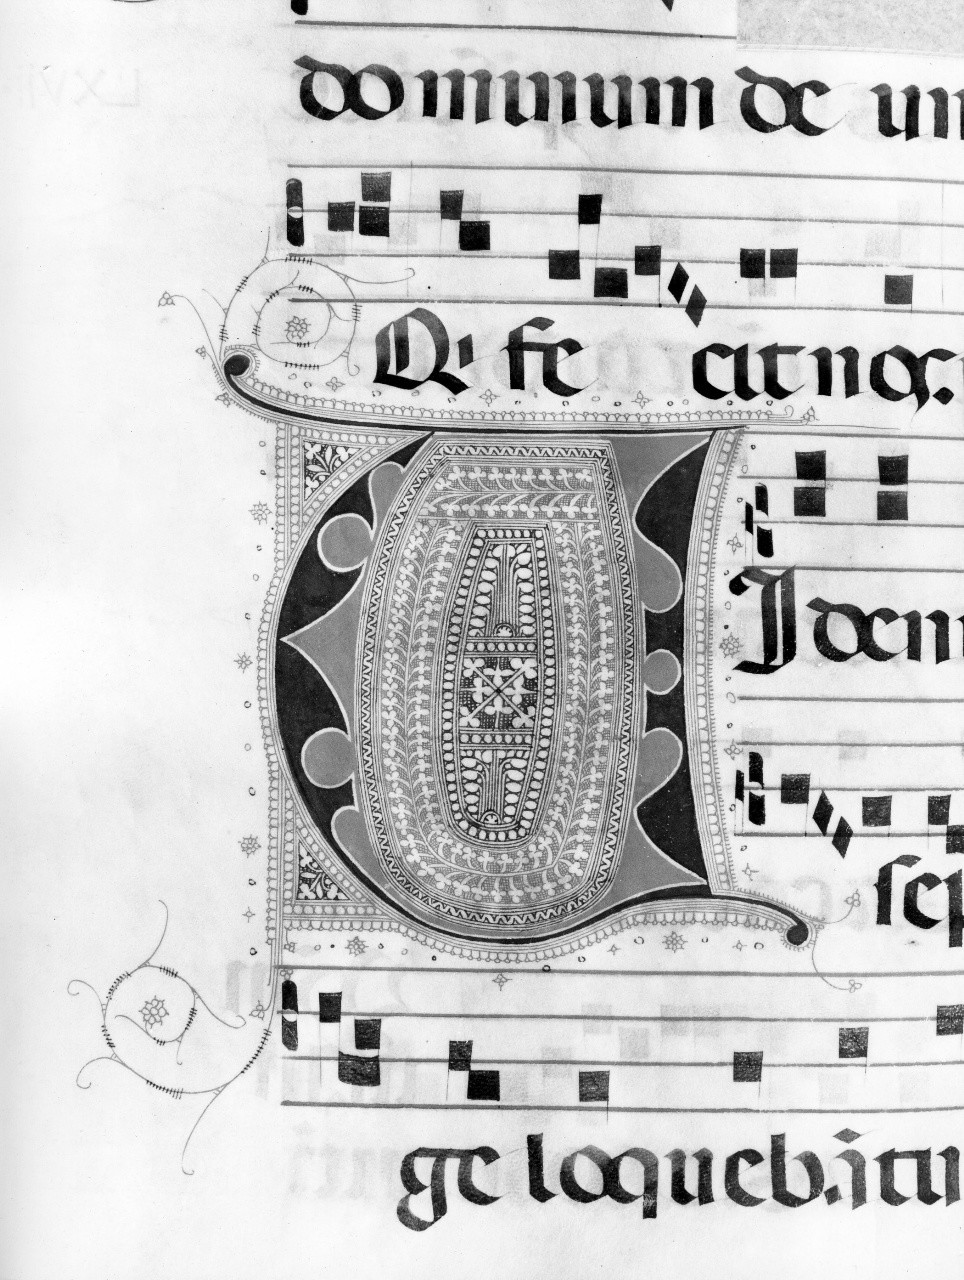 dominum de un
Qi fe citnos.
V Idem
sep
ge loquebãtu